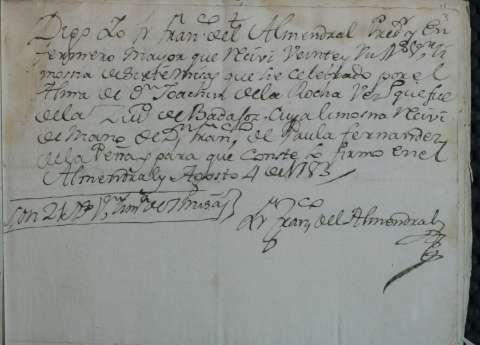 Digo Yo fr. fran.co del Almendral Pred.or y En
fermero mayor que Reciví Veinte y Un R.s v.n Li
mosna de siete Misas que he celebrado por el
Alma de D.n Joachin de la Rocha Vez.o que fue
de la Ziu.d de Badajoz. Cuya limosna Reciví
de Mano de D.n fran.co de Paula Fernandez
de la Peña, y para que conste lo firmo en el
Almendral y Agosto 4 de 1783
Son 21 R.s v.n lim.na de 7 misas
Fr. Fran.co del Almendral